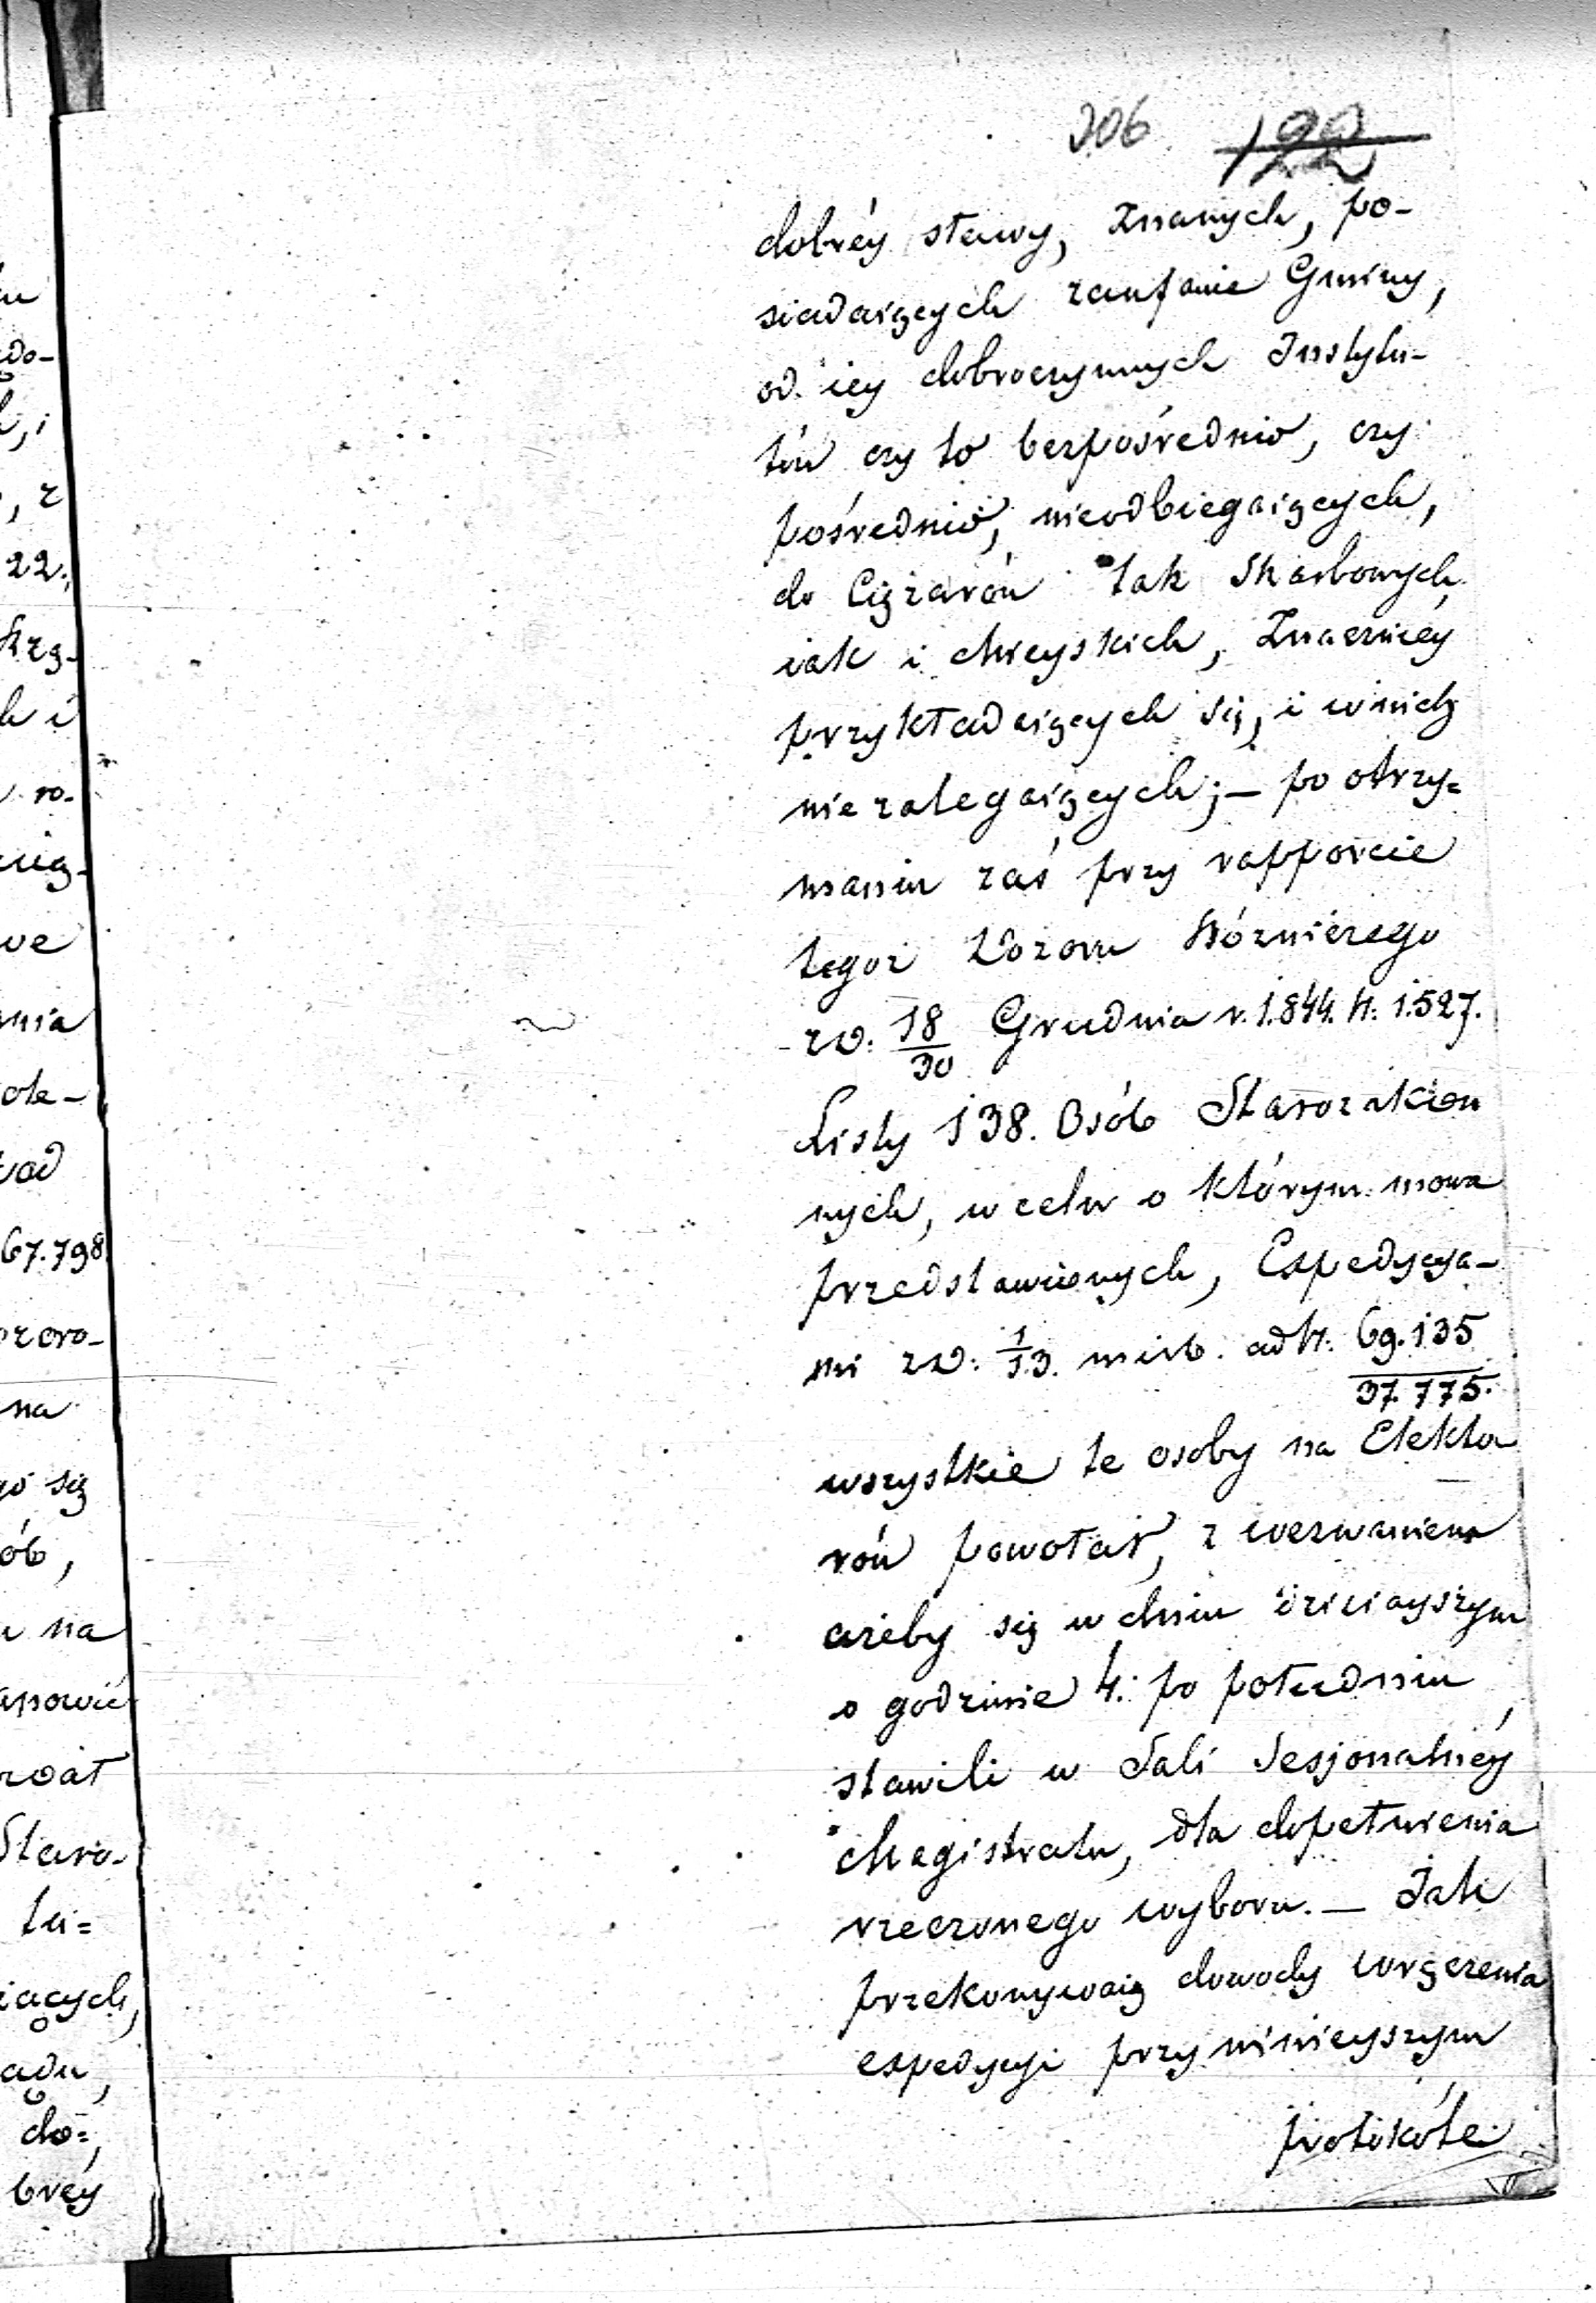 306 122
dobréy sławy, Znanych, po-
siadaiących zaufanie Gminy,
od iey dobroczynnych Instytu-
tów czy to bezpośrednio, czy
pośrednio, nieodbiegaiących,
do Ciężarów tak Skarbowych
iak i Mieyskich, Znaczniéy
przykładaiących się, i w nich
niezalegaiących; — po otrzy=
maniu zaś przy rapporcie
tegoż Dozoru Bóżniczego
z D: 18/30 Grudnia r. 1844. N: 1527.
Listy 138. Osób Starozakon
nych, w celu o którym mowa
przedstawionych, Expedycya-
mi z D: 1/13. m i r b. ad N: 69.135
37.775.
wszystkie te osoby na Elekto
rów powołał, z wezwaniem
ażeby się w dniu dzisiayszym
o godzinie 4. po południu,
stawili w Sali Sesjonalnéy
Magistratu, dla dopełnienia
rzeczonego wyboru. — Jak
przekonywaią dowody wręczenia
expedycyi przy ninieyszym
protokóle
22.
na
67.798
na
się
ób,
na
Staro-
tu=
iących,
do=
bréy